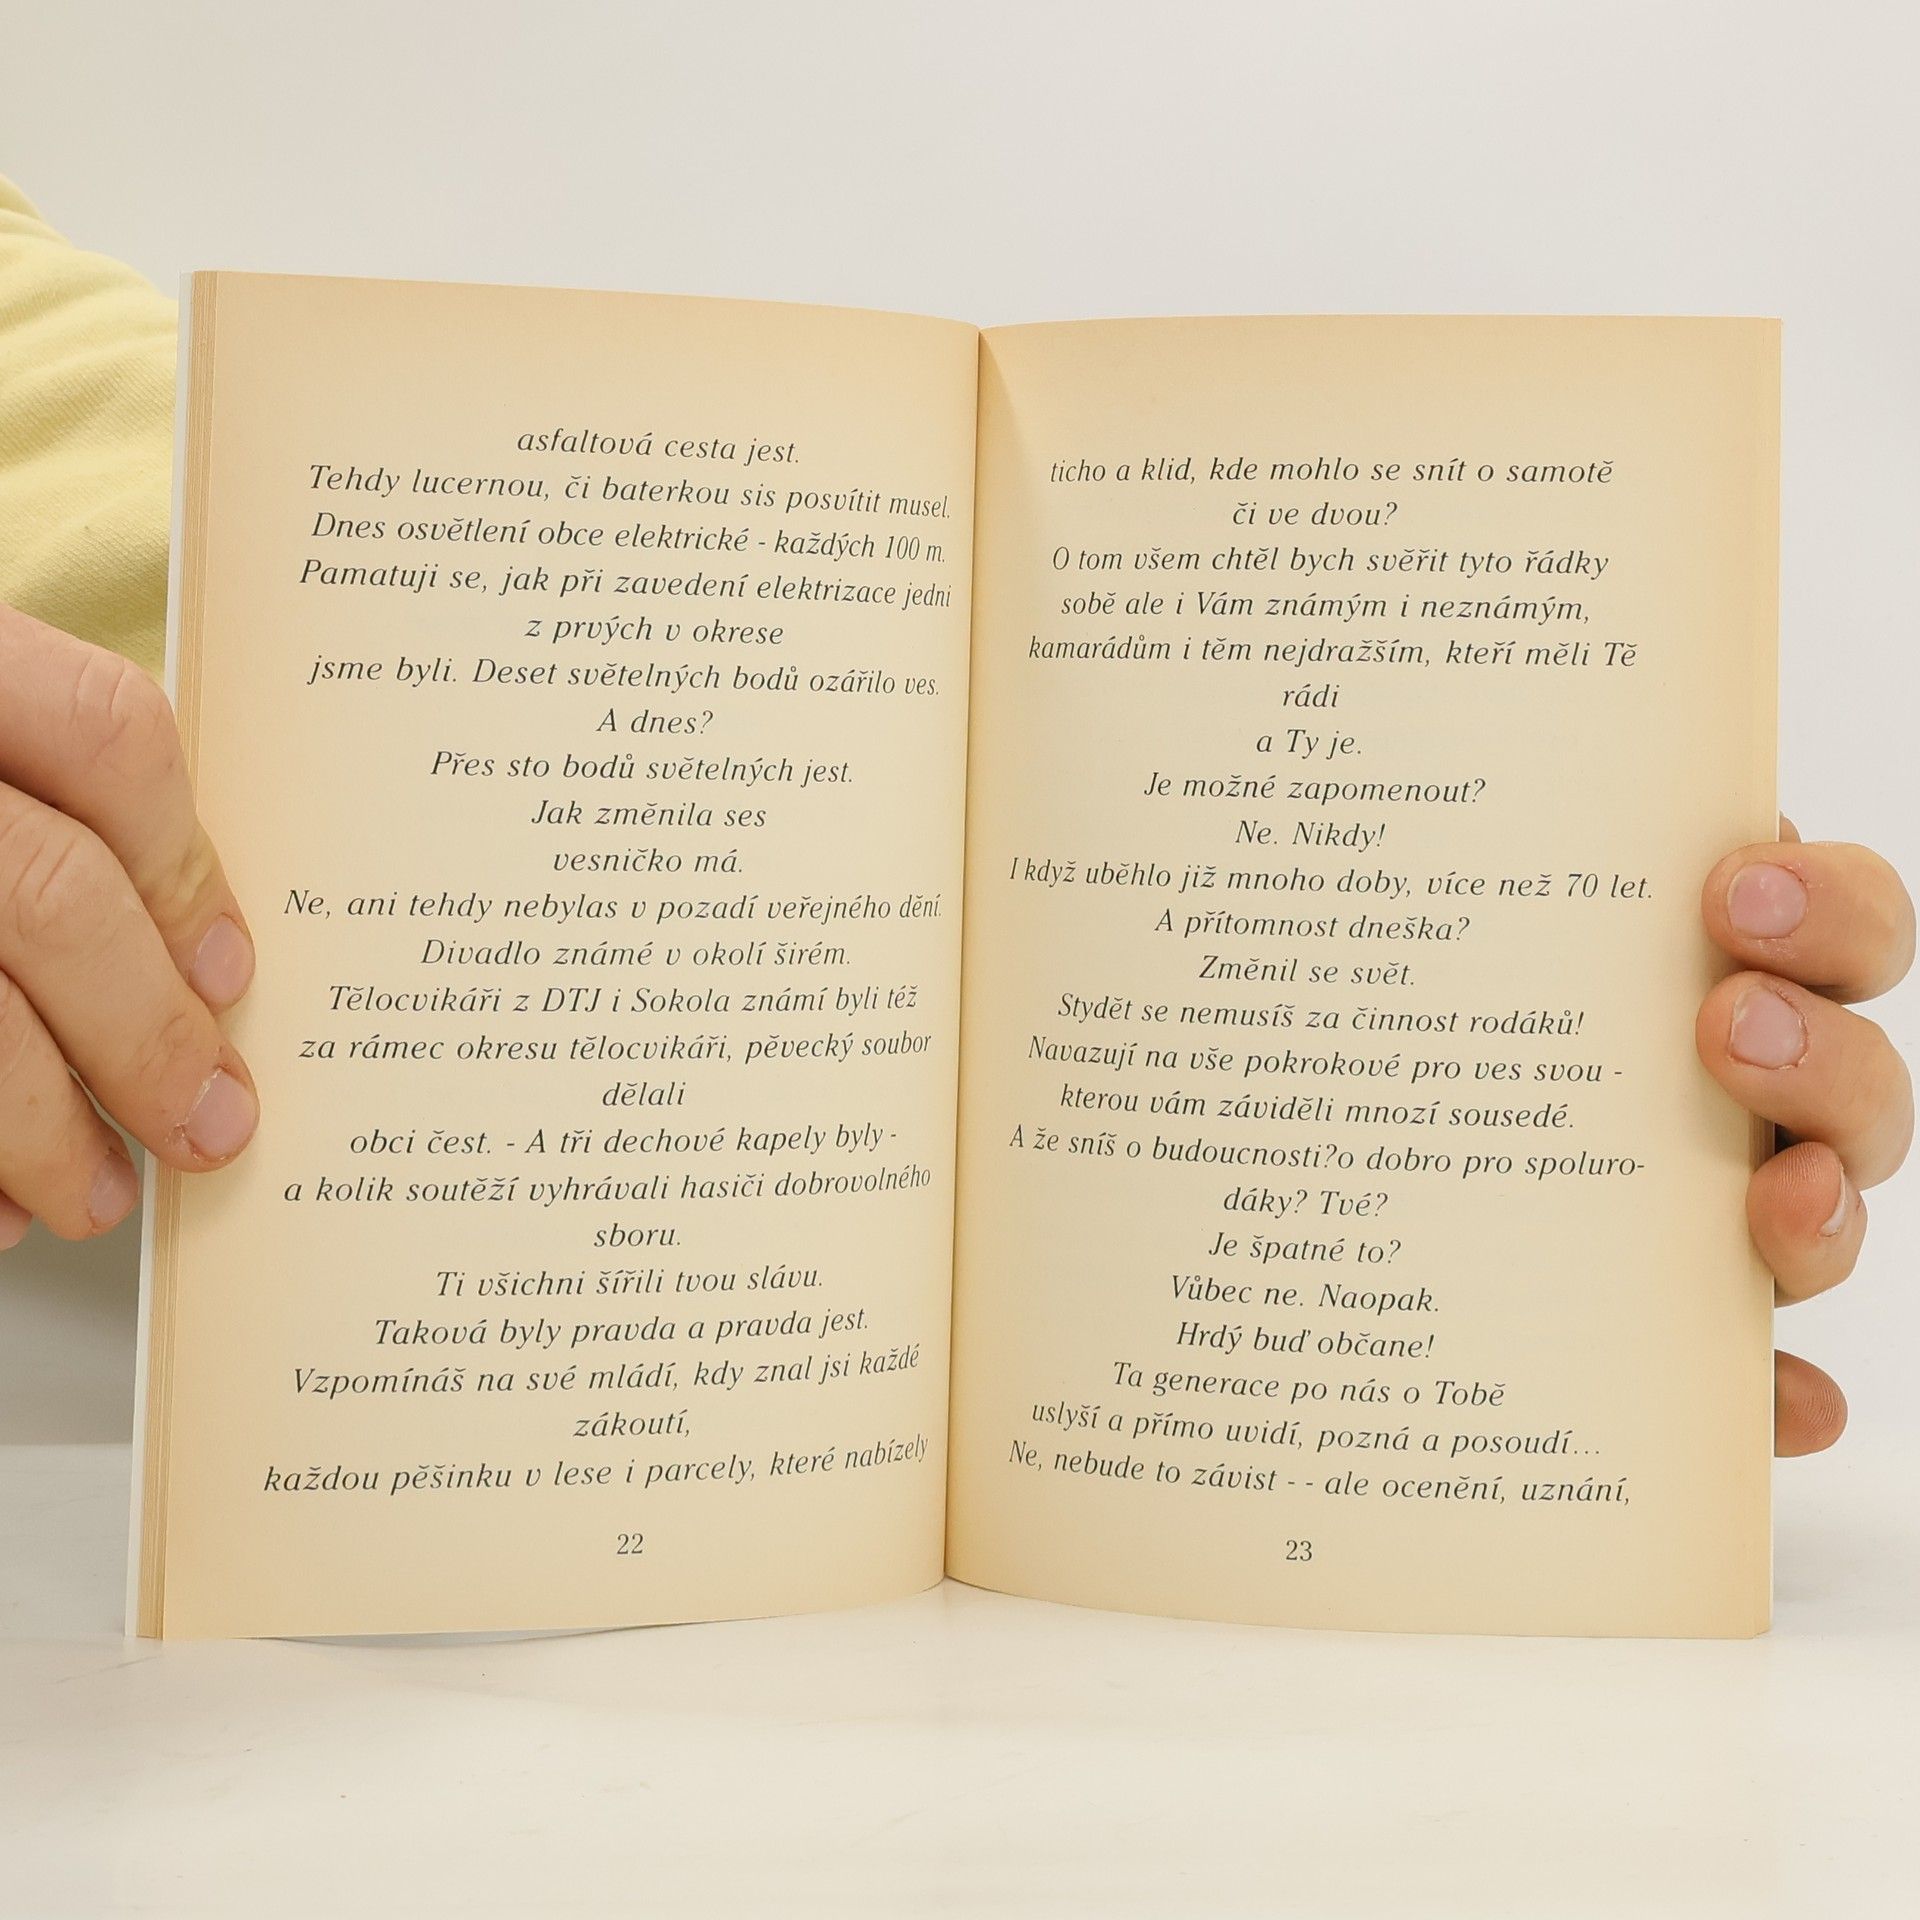 asfaltová cesta jest.
Tehdy lucernou, či baterkou sis posvítit musel.
Dnes osvětlení obce elektrické - každých 100 m.
Pamatuji se, jak při zavedení elektrizace jedni
z prvých v okrese
jsme byli. Deset světelných bodů ozářilo ves.
A dnes?
Přes sto bodů světelných jest.
Jak změnila ses
vesničko má.
Ne, ani tehdy nebylas v pozadí veřejného dění.
Divadlo známé v okolí širém.
Tělocvikáři z DTJ i Sokola známí byli též
za rámec okresu tělocvikáři, pěvecký soubor
dělali
obci čest. - A tři dechové kapely byly -
a kolik soutěží vyhrávali hasiči dobrovolného
sboru.
Ti všichni šířili tvou slávu.
Taková byly pravda a pravda jest.
Vzpomínáš na své mládí, kdy znal jsi každé
zákoutí,
každou pěšinku v lese i parcely, které nabízely
22
ticho a klid, kde mohlo se snít o samotě
či ve dvou?
O tom všem chtěl bych svěřit tyto řádky
sobě ale i Vám známým i neznámým,
kamarádům i těm nejdražším, kteří měli Tě
rádi
a Ty je.
Je možné zapomenout?
Ne. Nikdy!
I když uběhlo již mnoho doby, více než 70 let.
A přítomnost dneška?
Změnil se svět.
Stydět se nemusíš za činnost rodáků!
Navazují na vše pokrokové pro ves svou -
kterou vám záviděli mnozí sousedé.
A že sníš o budoucnosti?o dobro pro spoluro-
dáky? Tvé?
Je špatné to?
Vůbec ne. Naopak.
Hrdý buď občane!
Ta generace po nás o Tobě
uslyší a přímo uvidí, pozná a posoudí...
Ne, nebude to závist - - ale ocenění, uznání,
23